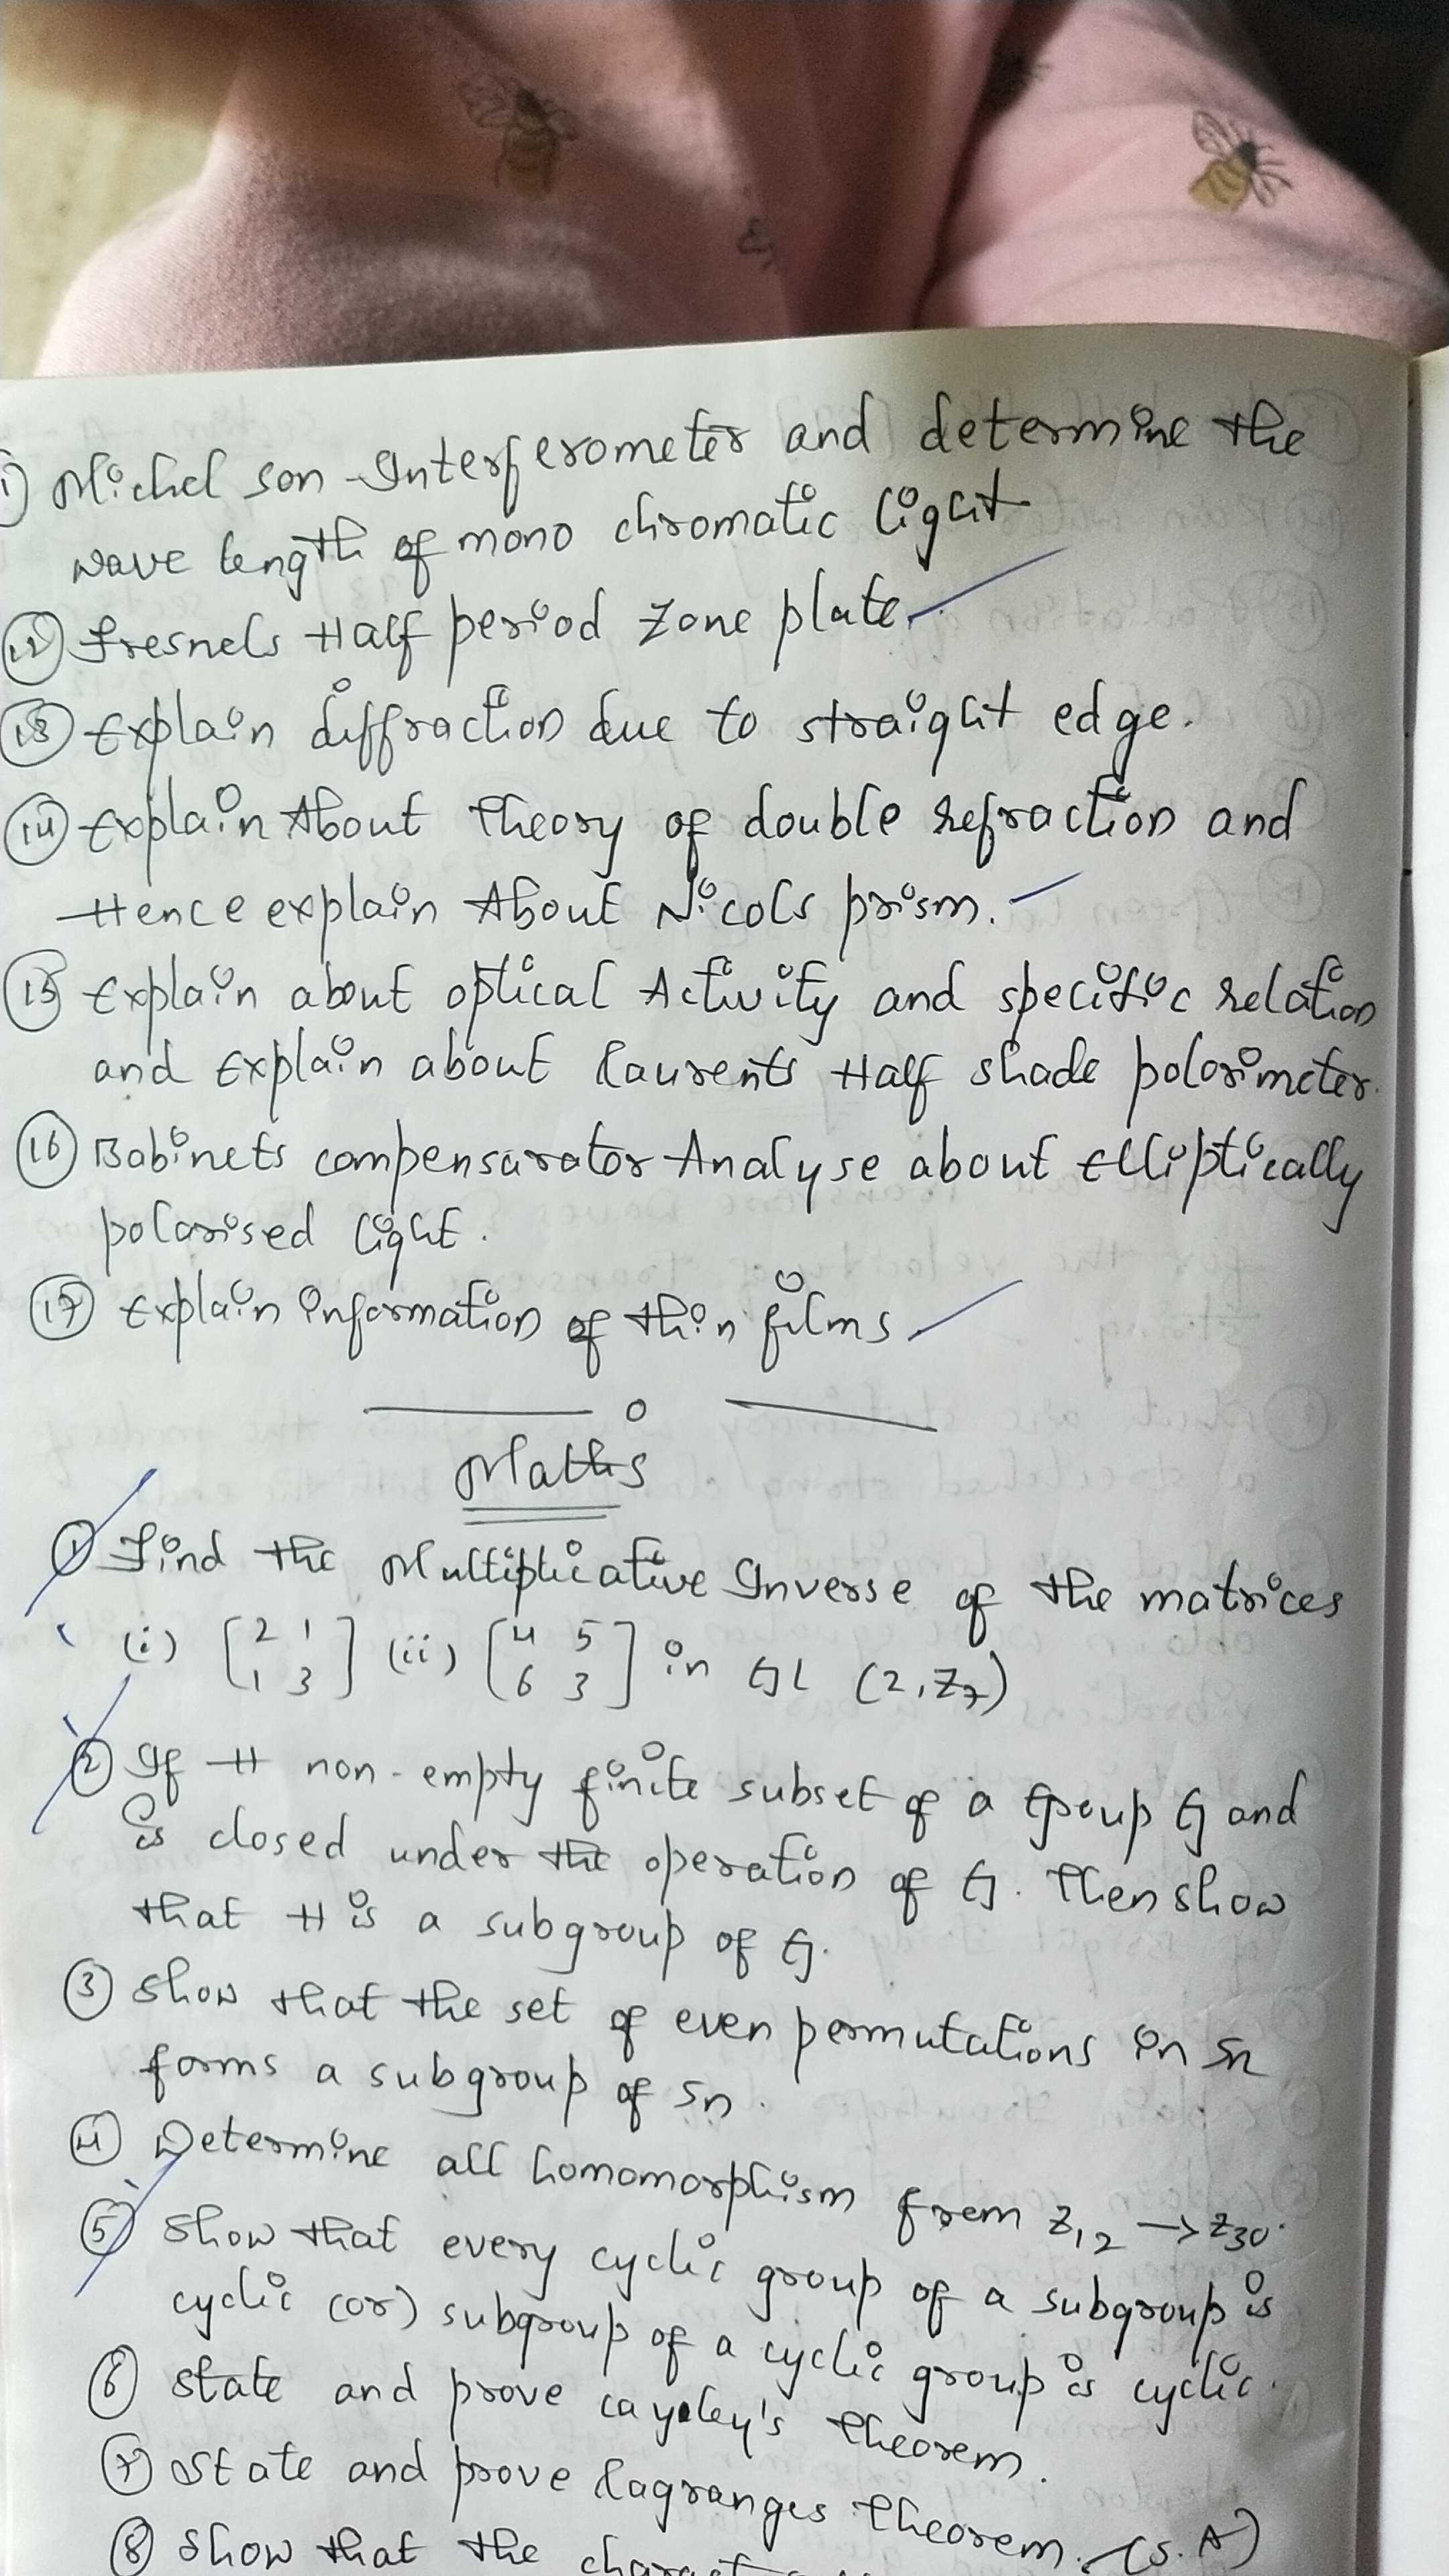 1) Michel son Interferometer and determine the
wave length of mono chromatic light
12 Fresnels Half period zone plate
13 Explain diffraction due to straight edge.
14 Explain About theory of double refraction and
Hence explain About Nicols prism.
15 Explain about optical Activity and specific relation
and Explain about Laurents Half shade polorimeter.
16 Babinets compensarator Analyse about elliptically
polarised light.
17 Explain information of thin films
Maths
1 Find the Multiplicative Inverse of the matrices
(i) [2 1 (ii) [4 5
1 3] 6 3] in GL (2, Z7)
2 If H non-empty finite subset of a Group G and
is closed under the operation of G. Then show
that H is a subgroup of G.
3 Show that the set of even permutations in Sn
forms a subgroup of Sn.
4 Determine all homomorphism from Z12 → Z30.
5 Show that every cyclic group of a subgroup is
cyclic (or) subgroup of a cyclic group is cyclic.
6 State and prove cayeley's theorem.
7 State and prove Lagranges theorem. (S.A)
8 Show that the